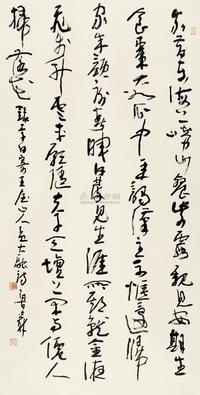 我昔東海上嶗山餐紫霞親見安期生
食棗大如瓜中年謁漢主不愜還歸
家朱顏謝春暉白髮見生涯所期就金液
飛步升雲車願隨夫子天壇上閒與僊人
掃落花 錄李白寄王屋山人孟大融詩